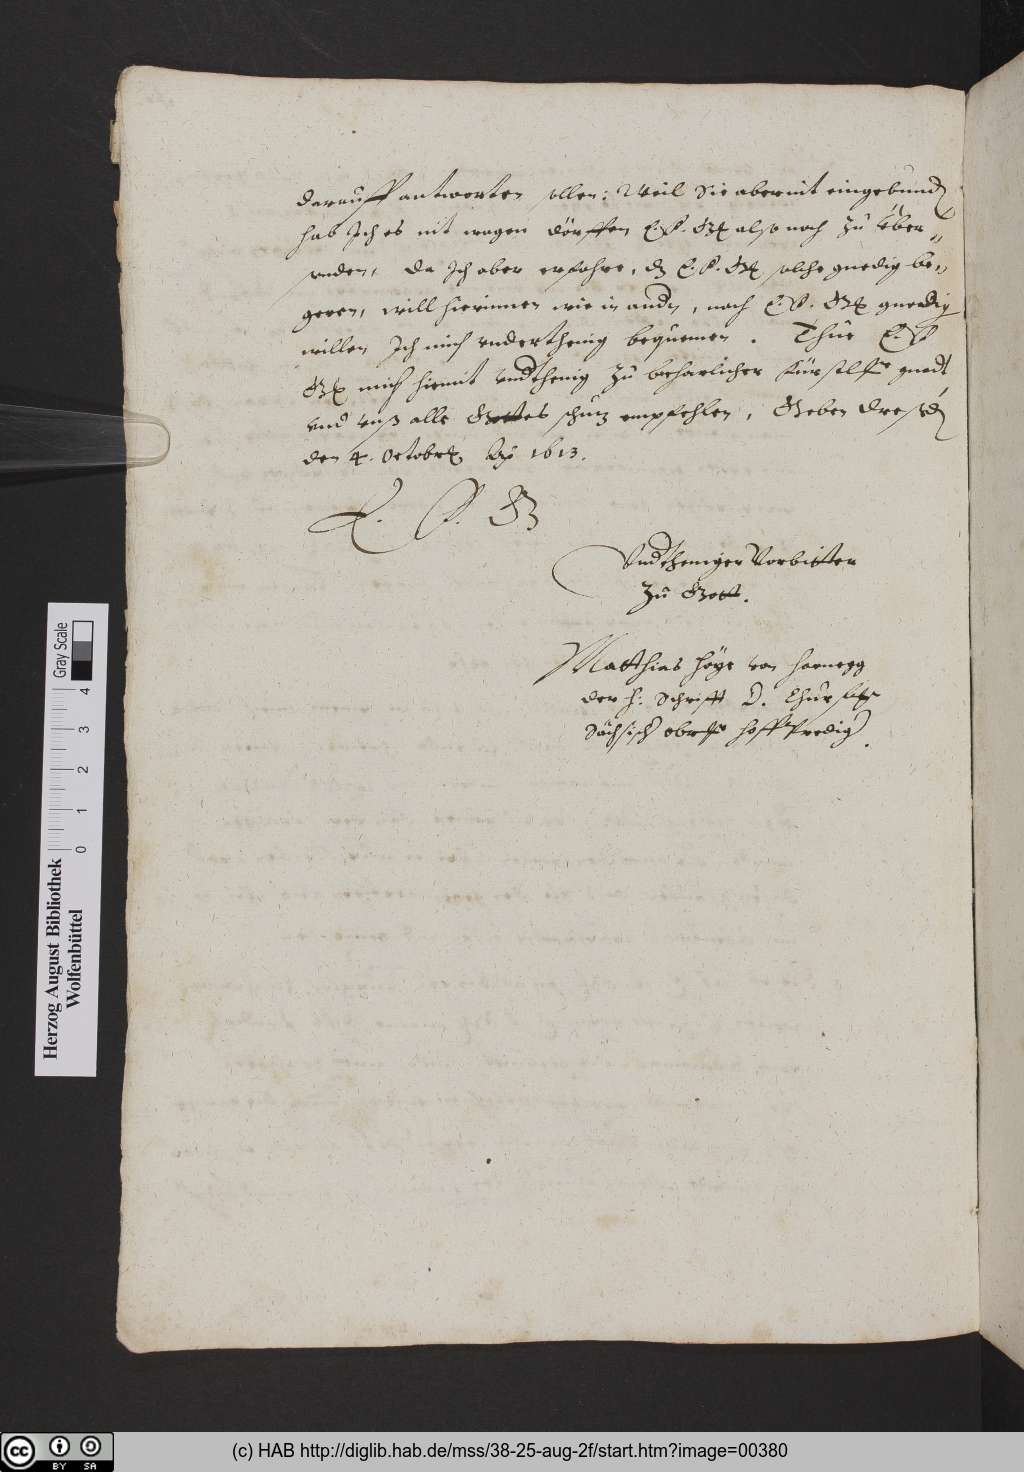 darauff antworten sollen: Weil Sie aber nit eingebunden
hab Ich es nit wagen dörffen E. F. G. also noch zu über-
senden, da Ich aber erfahre, dz E. F. G. solche gnedig be-
geren, will hierinnen wie in andn, nach E. F. G. gnedig
willen Ich mich vnderthenig bequemen. Thue E. F.
G. mich hiemit vndthenig zu beharlicher Fürstl. gnad
vnd vnß alle Gottes schutz empfehlen, Geben Dreßd
den 4. Octobr. Ao 1613.
E. F. G
Vndtheniger Vorbitter
Zu Gott.
Matthias Höye von Hoenegg
der H: Schrifft D. Churf.
Sächsisch obrst Hoffpredig.
Herzog August Bibliothek
Wolfenbüttel
Gray Scale
0 1 2 3 4
cc BY SA
(c) HAB http://diglib.hab.de/mss/38-25-aug-2f/start.htm?image=00380